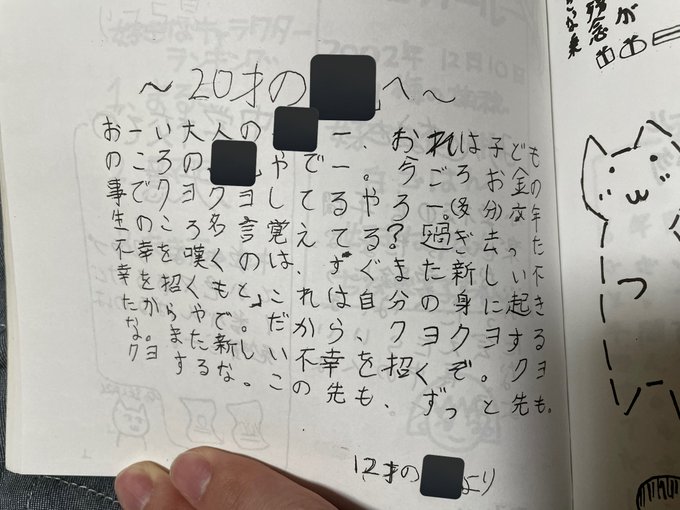 〜20才の へ〜
おーい大人の ー、おれは子ども
のころの やでー。今ごろお金の
事でクヨクヨしてるやろー。(多分)六年
生のころの名言覚えてる?「過ぎ去った
不幸を嘆くのは、すぐまた新しい不
幸を招くもと」。これは自分の身に起き
たからやで。だから、クヨクヨする
な。また新しい不幸を招くぞ。クヨ
クヨするな。この先も、ずっと先も。
12才の より